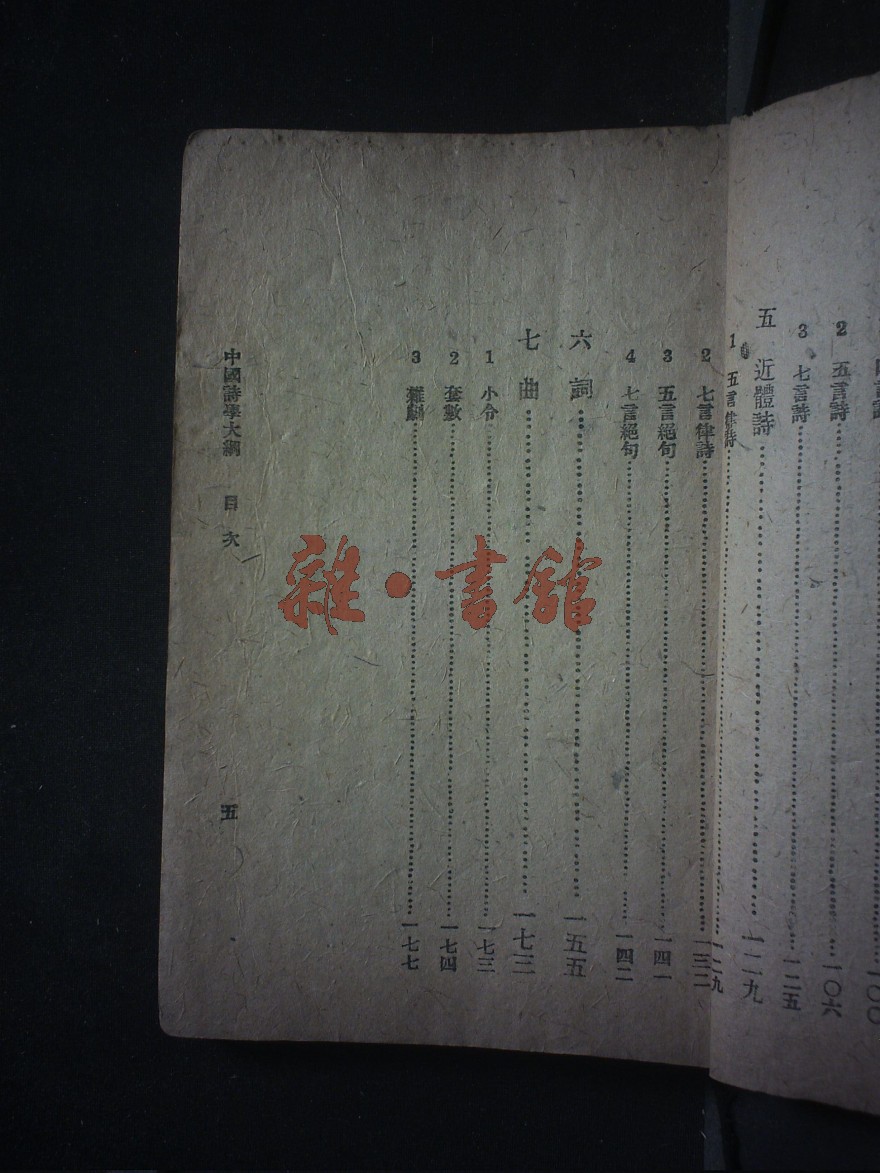 一〇〇
2 五言詩……一〇六
3 七言詩……一二五
五 近體詩……一二九
1 五言律詩……一二九
2 七言律詩……一三二
3 五言絕句……一四一
4 七言絕句……一四二
六 詞……一五五
七 曲……一七三
1 小令……一七三
2 套數……一七四
3 雜劇……一七七
中國詩學大綱 目次 五
雜·書館